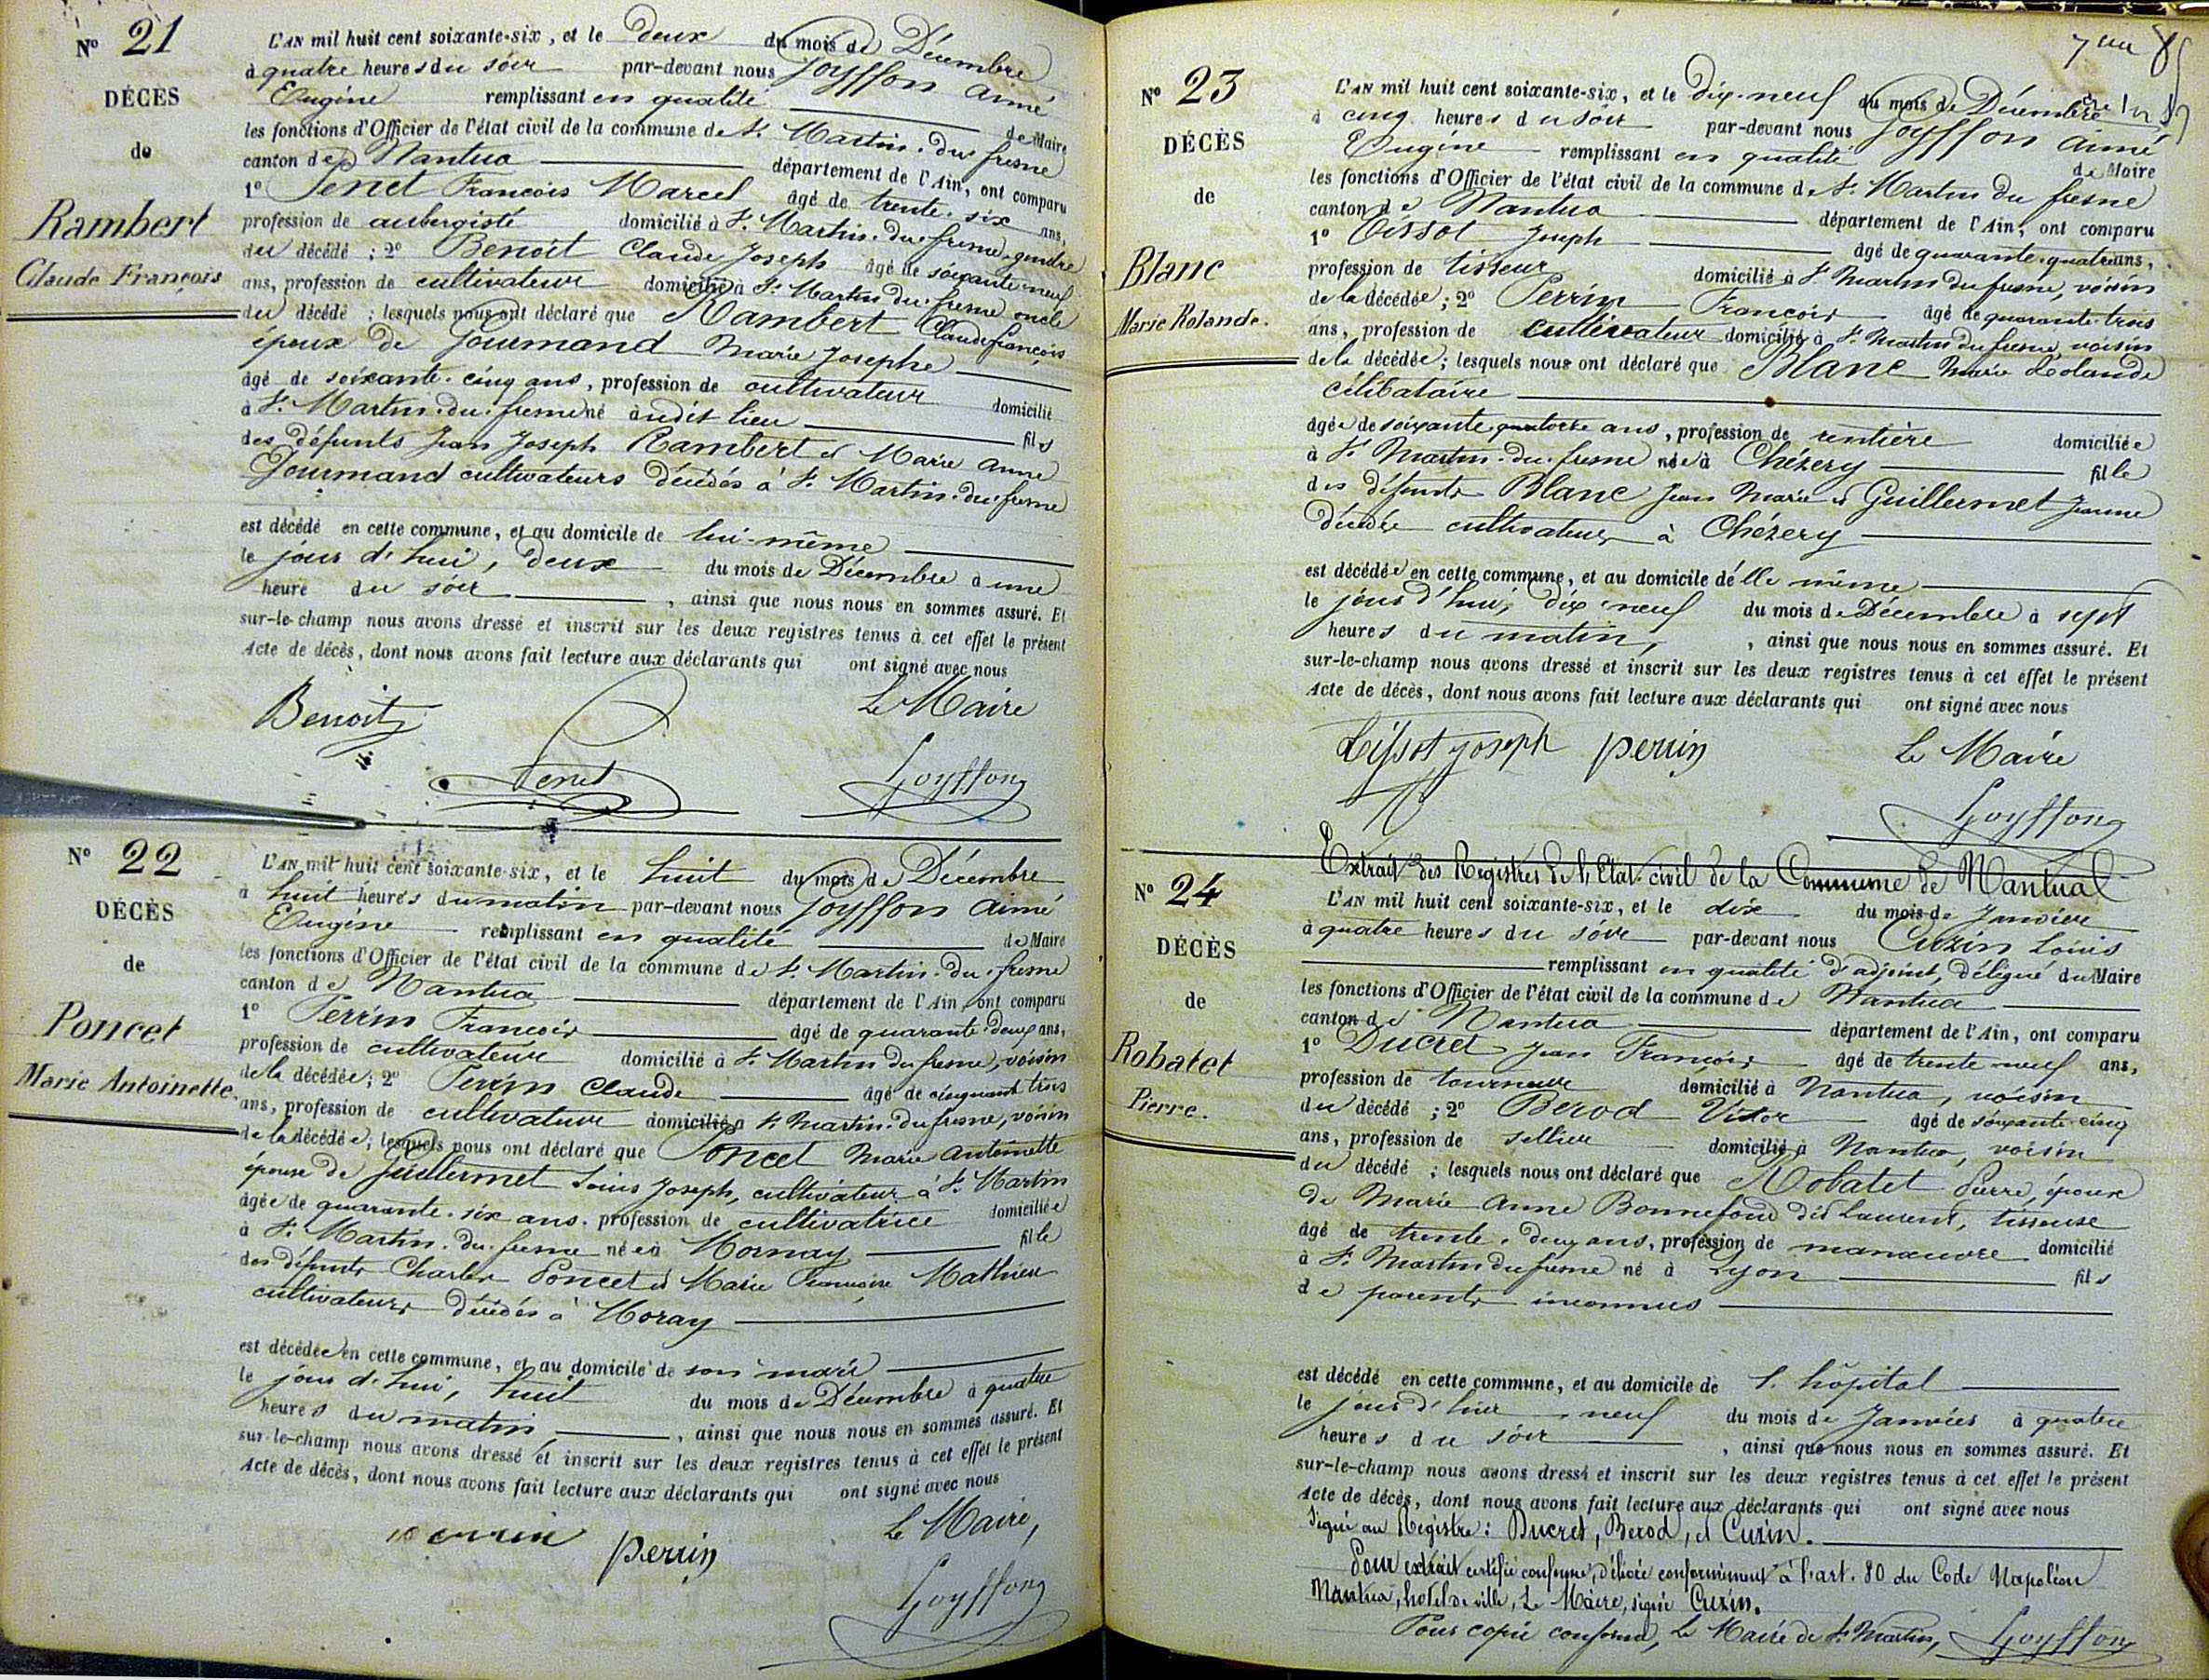 N° 21
DÉCÈS
de
Rambert
Claude François
L'AN mil huit cent soixante-six, et le deux du mois de Décembre
à quatre heures du soir par-devant nous Goyffon Aimé
Eugène remplissant en qualité de Maire
les fonctions d'Officier de l'état civil de la commune de St Martin-du-fresne
canton de Nantua département de l'Ain, ont comparu
1° Penet François Marcel âgé de trente-six ans,
profession de aubergiste domicilié à St Martin-du-fresne, gendre
du décédé ; 2° Benoit Claude Joseph âgé de soixante-neuf
ans, profession de cultivateur domicilié à St Martin du fresne oncle
du décédé ; lesquels nous ont déclaré que Rambert Claude françois
époux de Gourmand Marie Josephe
âgé de soixante-cinq ans, profession de cultivateur domicilié
à St Martin-du-fresne né audit lieu fils
des défunts Jean Joseph Rambert et Marie Anne
Gourmand cultivateurs décédés à St Martin-du-fresne
est décédé en cette commune, et au domicile de lui-même
le jour d'hui, deux du mois de Décembre à une
heure du soir, ainsi que nous nous en sommes assuré. Et
sur-le-champ nous avons dressé et inscrit sur les deux registres tenus à cet effet le présent
Acte de décès, dont nous avons fait lecture aux déclarants qui ont signé avec nous
Le Maire
Benoit
Penet
Goyffon
N° 22
DÉCÈS
de
Poncet
Marie Antoinette.
L'AN mil huit cent soixante-six, et le huit du mois de Décembre
à huit heures du matin par-devant nous Goyffon Aimé
Eugène remplissant en qualité de Maire
les fonctions d'Officier de l'état civil de la commune de St Martin-du-fresne
canton de Nantua département de l'Ain, ont comparu
1° Perrin François âgé de quarante-deux ans,
profession de cultivateur domicilié à St Martin du fresne, voisin
de la décédée ; 2° Perrin Claude âgé de cinquante trois
ans, profession de cultivateur domicilié à St Martin-du-fresne, voisin
de la décédée ; lesquels nous ont déclaré que Poncet Marie Antoinette
épouse de Guillermet Louis Joseph, cultivateur à St Martin
âgée de quarante-six ans, profession de cultivatrice domiciliée
à St Martin-du-fresne née à Mornay fille
des défunts Charles Poncet et Marie Françoise Mathieu
cultivateurs décédés à Moray
est décédée en cette commune, et au domicile de son mari
le jour d'hui, huit du mois de Décembre à quatre
heures du matin, ainsi que nous nous en sommes assuré. Et
sur-le-champ nous avons dressé et inscrit sur les deux registres tenus à cet effet le présent
Acte de décès, dont nous avons fait lecture aux déclarants qui ont signé avec nous
Le Maire,
perrin perrin
Goyffon
N° 23
DÉCÈS
de
Blanc
Marie Rolande.
L'AN mil huit cent soixante-six, et le dix-neuf du mois de Décembre
à cinq heures du soir par-devant nous Goyffon Aimé
Eugène remplissant en qualité de Maire
les fonctions d'Officier de l'état civil de la commune de St Martin du fresne
canton de Nantua département de l'Ain, ont comparu
1° Tissot Joseph âgé de quarante-quatre ans,
profession de tisseur domicilié à St Martin du fresne, voisin
de la décédée ; 2° Perrin François âgé de quarante-trois
ans, profession de cultivateur domicilié à St Martin du fresne, voisin
de la décédée ; lesquels nous ont déclaré que Blanc Marie Rolande
célibataire
âgée de soixante quatorze ans, profession de rentière domiciliée
à St Martin-du-fresne née à Chézery fille
des défunts Blanc Jean Marie et Guillermet Jeanne
décédés cultivateurs à Chézery
est décédée en cette commune, et au domicile d'elle même
le jour d'hui, dix-neuf du mois de Décembre à sept
heures du matin, ainsi que nous nous en sommes assuré. Et
sur-le-champ nous avons dressé et inscrit sur les deux registres tenus à cet effet le présent
Acte de décès, dont nous avons fait lecture aux déclarants qui ont signé avec nous
Tissot joseph perrin Le Maire
Goyffon
Extrait des Registres de l'Etat-civil de la Commune de Nantua
N° 24
DÉCÈS
de
Robatet
Pierre.
L'AN mil huit cent soixante-six, et le dix du mois de Janvier
à quatre heures du soir par-devant nous Cuzin Louis
remplissant en qualité d'adjoint, délégué du Maire
les fonctions d'Officier de l'état civil de la commune de Nantua
canton de Nantua département de l'Ain, ont comparu
1° Ducret Jean François âgé de trente neuf ans,
profession de tourneur domicilié à Nantua, voisin
du décédé ; 2° Berod Victor âgé de soixante-cinq
ans, profession de sellier domicilié à Nantua, voisin
du décédé ; lesquels nous ont déclaré que Robatet Pierre, époux
de Marie Anne Bonnefond dit Laurent, tisseuse
âgé de trente-deux ans, profession de manœuvre domicilié
à St Martin du fresne né à Lyon fils
de parents inconnus
est décédé en cette commune, et au domicile de l'hôpital
le jour d'hier neuf du mois de Janvier à quatre
heures du soir, ainsi que nous nous en sommes assuré. Et
sur-le-champ nous avons dressé et inscrit sur les deux registres tenus à cet effet le présent
Acte de décès, dont nous avons fait lecture aux déclarants qui ont signé avec nous
Signé au Registre : Ducret, Berod, et Cuzin.
Pour extrait certifié conforme, délivré conformément à l'art. 80 du Code Napoléon
Nantua, hotel de ville, Le Maire, signé Cuzin.
Pour copie conforme, Le Maire de St Martin, Goyffon